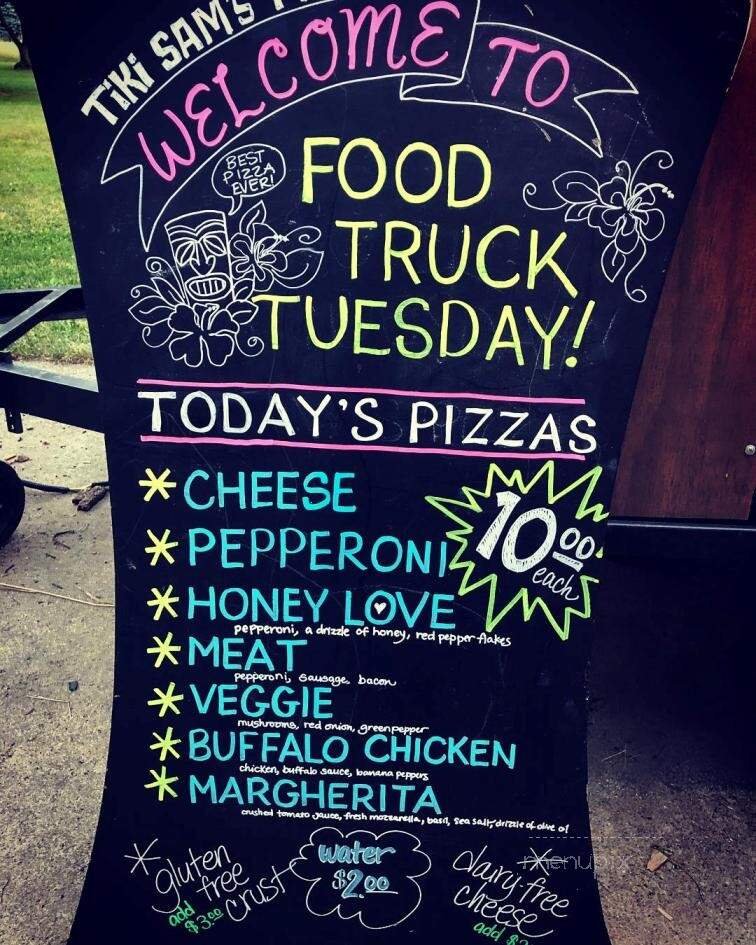 TIKI SAM'S
WELCOME TO
BEST
PIZZA
EVER!
FOOD
TRUCK
TUESDAY!
TODAY'S PIZZAS
* CHEESE
* PEPPERONI
10.00
each
* HONEY LOVE
pepperoni, a drizzle of honey, red pepper flakes
* MEAT
pepperoni, sausage, bacon
* VEGGIE
mushrooms, red onion, green pepper
* BUFFALO CHICKEN
chicken, buffalo sauce, banana peppers
* MARGHERITA
crushed tomato sauce, fresh mozzarella, basil, sea salt, drizzle of olive oil
* gluten
free
crust
add
$3.00
water
$2.00
* dairy-free
cheese
add
menupix